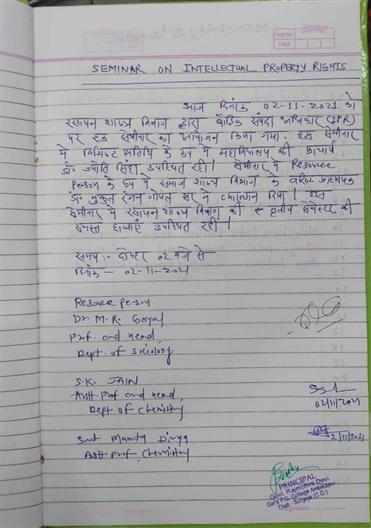 SEMINAR ON INTELLECTUAL PROPERTY RIGHTS
आज दिनांक 02-11-2021 को
रसायन शास्त्र विभाग द्वारा बौद्धिक संपदा अधिकार (IPR)
पर एक सेमीनार का आयोजन किया गया। इस सेमीनार
में विशिष्ट अतिथि के रूप में महाविद्यालय की प्राचार्य
डॉ. ज्योति सिन्हा उपस्थित रहीं। सेमीनार में Resource
Person के रूप में समाज शास्त्र विभाग के वरिष्ठ प्राध्यापक
डॉ. ने किया। इस
सेमीनार में रसायन शास्त्र विभाग की तृतीय सेमेस्टर की
समस्त छात्राएं उपस्थित रहीं।
समय:- दोपहर 02 बजे से
दिनांक - 02-11-2021
Resource Person
Dr M. R. Goyal
Prof. and head,
Dept. of Sociology
S.K. JAIN
Asstt Prof and head,
Dept of Chemistry
02/11/2021
Smt Mamta Divya
Asstt Prof, Chemistry
2/11/2021
PRINCIPAL
Govt. Rajmohini Devi
Girls P.G. College Ambikapur
Distt - Surguja (C.G.)